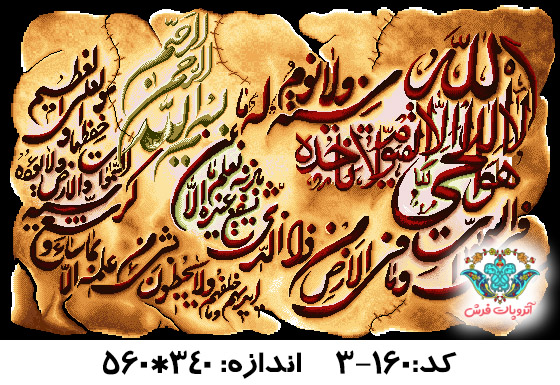 بسم الله الرحمن الرحیم
الله لا اله الا هو الحی القیوم لا تأخذه
سنة ولا نوم له ما فی السموات وما فی الارض
من ذا الذی یشفع عنده الا باذنه یعلم ما
بین ایدیهم وما خلفهم ولا یحیطون بشیء من علمه الا بما شاء
وسع کرسیه السموات والارض ولا یؤده حفظهما
وهو العلی العظیم
آتروپات فرش
کد:۳-۱۶۰ اندازه: ۳۴۰*۵۶۰